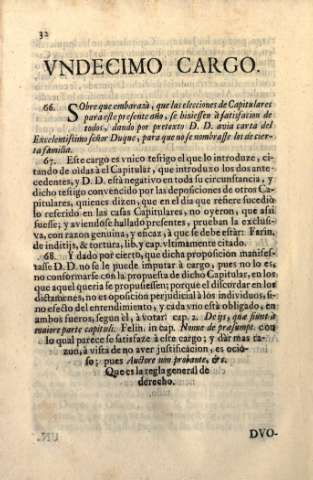 32
VNDECIMO CARGO.
66. SObre que embaraza, que las elecciones de Capitulares
para este presente año, se hiziessen à satisfacion de
todos, dando por pretexto D. D. avia carta del
Excelentissimo señor Duque, para que no se nombrasse los de cier-
ta familia.
67. Este cargo es vnico testigo el que lo introduze, ci-
tando de oidas à el Capitular, que introduxo los dos ante-
cedentes, y D. D. està negativo en toda su circunstancia, y
dicho testigo convencido por las deposiciones de otros Ca-
pitulares, quienes dizen, que en el dia que refiere sucediò
lo referido en las casas Capitulares, no oyeron, que assi
fuesse; y aviendose hallado presentes, prueban la exclusi-
va, con razon genuina, y eficaz, à que se debe estàr: Farin.
de inditijs, & tortura, lib. y cap. vltimamente citado.
68. Y dado por cierto, que dicha proposicion manifes-
tasse D. D. no se le puede imputar à cargo, pues no lo es,
no conformarse con la propuesta de dicho Capitular, en los
que aquel queria se propusiessen; porque el discordar en los
dictamenes, no es oposicion perjudicial à los individuos, si-
no efecto del entendimiento, y cada vno està obligado, en
ambos fueros, segun èl, à votar: cap. 2. De ijs, quæ fiunt à
maiore parte capituli. Felin. in cap. Nonne de præsumpt. con
lo qual parece se satisfaze à este cargo; y dar mas ra-
zon, à vista de no aver justificacion, es ocio-
so; pues Auctore non probante, &c.
Que es la regla general de
derecho.
DVO-